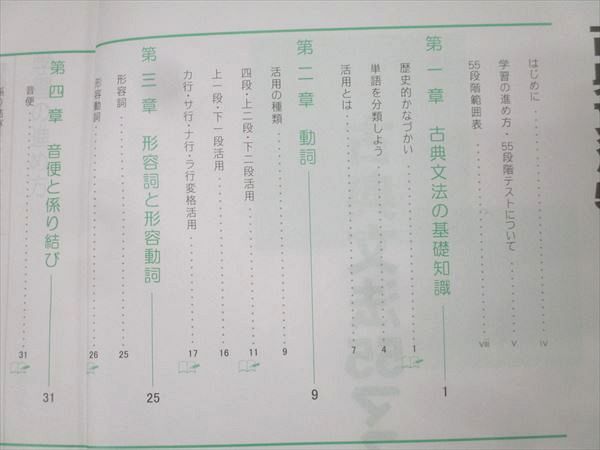 はじめに IV
学習の進め方・55段階テストについて V
55段階範囲表 VIII
第一章 古典文法の基礎知識 1
歴史的かなづかい 1
単語を分類しよう 4
活用とは 7
第二章 動詞 9
活用の種類 9
四段・上二段・下二段活用 11
上一段・下一段活用 16
カ行・サ行・ナ行・ラ行変格活用 17
第三章 形容詞と形容動詞 25
形容詞 25
形容動詞 26
第四章 音便と係り結び 31
音便 31